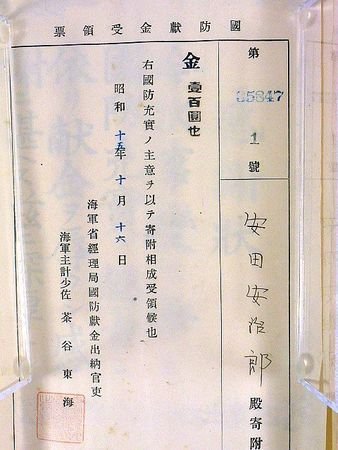 國防獻金受領票
第 35847 1 號
安田安治郎 殿寄附
金 壹百圓也
右國防充實ノ主意ヲ以テ寄附相成受領候也
昭和十五年十月十六日
海軍省經理局國防獻金出納官吏
海軍主計少佐 茶谷東海